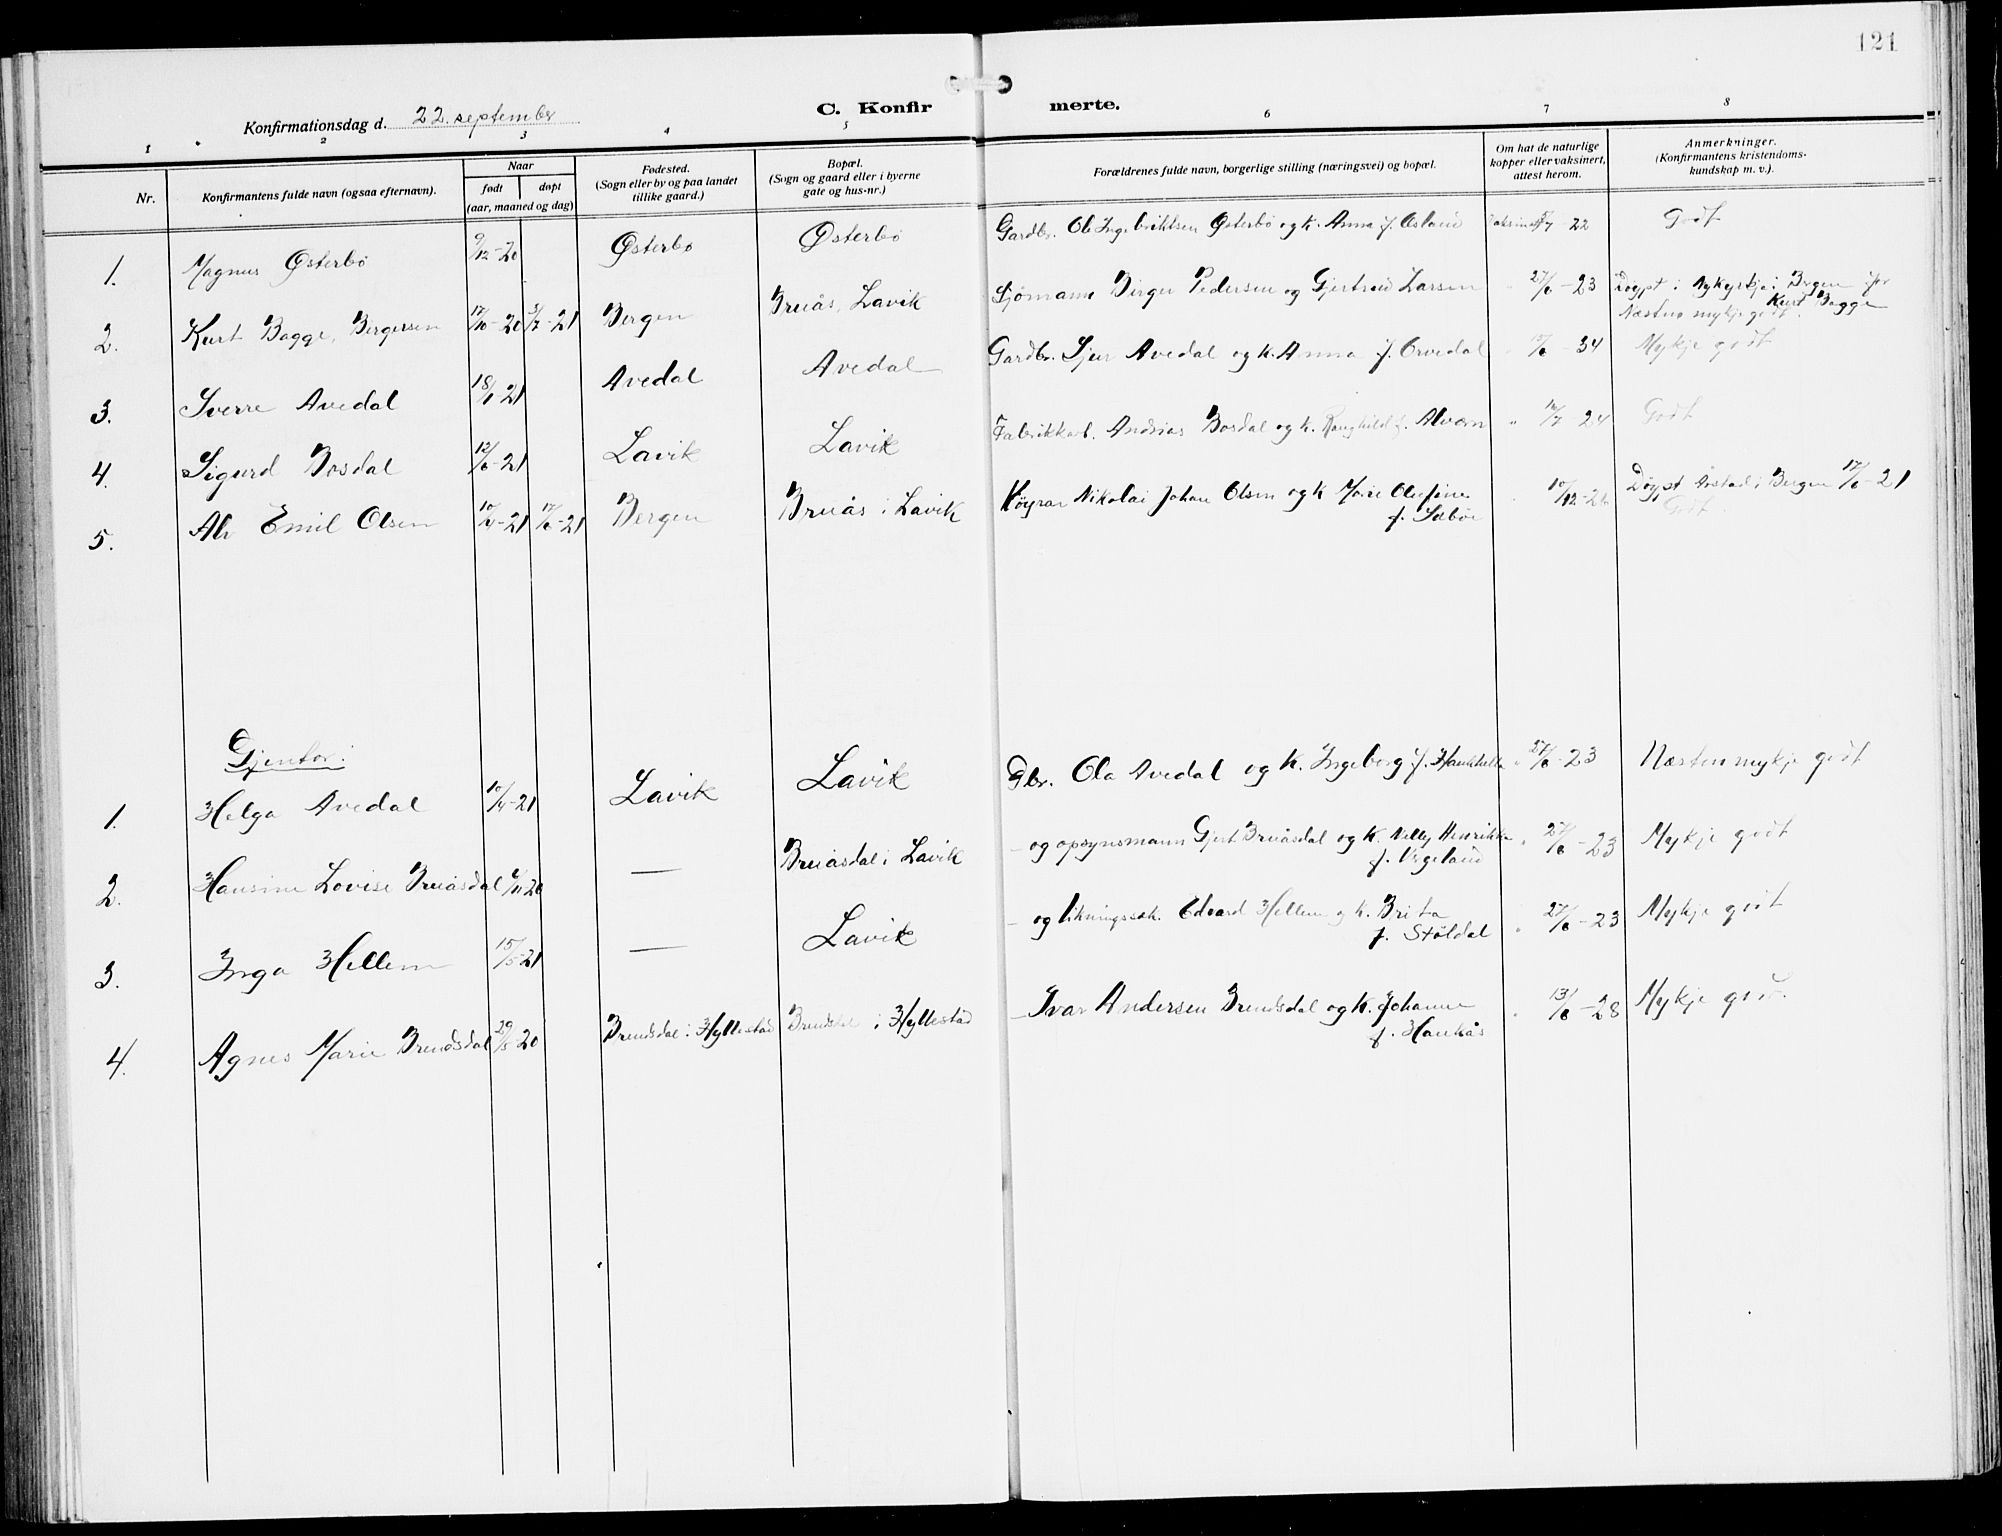 121
Konfirmationsdag d. 22. september
C. Konfir merte.
1 2 3 4 5 6 7 8
Nr.
Konfirmantens fulde navn (ogsaa efternavn).
Naar
født døpt
(aar, maaned og dag)
Fødested.
(Sogn eller by og paa landet
tillike gaard.)
Bopæl.
(Sogn og gaard eller i byerne
gate og hus-nr.)
Forældrenes fulde navn, borgerlige stilling (næringsvei) og bopæl.
Om hat de naturlige
kopper eller vaksinert,
attest herom.
Anmerkninger.
(Konfirmantens kristendoms-
kundskap m. v.).
1. Magnus Østerbø 9/12-20 Østerbø Østerbø Gardbr. Ole Ingebriktsen Østerbø og k. Anna f. Osland -22 Godt
2. Kurt Bagge Bergersen 17/10-20 -21 Bergen Bruås, Lavik Sjømann Birger Pedersen og Gjertrud Larsen 27/6-23 Døypt i Nykyrkje i Bergen for
Kurt Bagge
Næsten mykje godt.
3. Sverre Avedal 18/1-21 Avedal Avedal Gardbr. Sjur Avedal og k. Anna f. Orvedal -34 Mykje godt
4. Sigurd Bosdal 12/6-21 Lavik Lavik Fabrikkarb. Andrias Bosdal og k. Ranghild f. Alværn " -24 Godt
5. Alv Emil Olsen -21 17/6-21 Bergen Bruås i Lavik Køyrar Nikolai Johan Olsen og k Marie Olufine
f. Sæbøe
10/12- Døypt Årstad i Bergen 17/6-21
Godt.
Gjentor:
1. Helga Avedal 10/4-21 Lavik Lavik Gbr. Ola Avedal og k. Ingeborg f. 27/6-23 Næsten mykje godt
2. Hansine Lovise Bruåsdal /11 20 — Bruåsdal i Lavik - og opsynsmann Gjert Bruåsdal og k. Nelly Henrikke
f. Vegeland
" 27/6-23 Mykje godt
3. Inga Hellem 15/5-21 — Lavik - og likningssek. Edvard Hellem og k. Brita
f. Støldal
" 27/6-23 Mykje godt
4. Agnes Marie Brendsdal 29/5-20 Brendsdal i Hyllestad Brendsdal i Hyllestad - Ivar Andersen Brendsdal og k. Johanne
f. Haukås
" 13/6-28 Mykje godt.